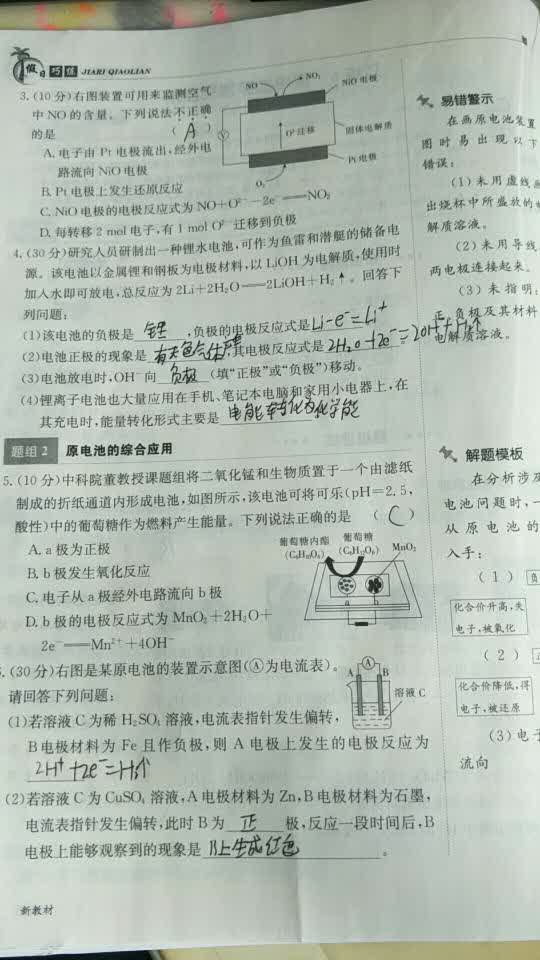 假日 巧练 JIARI QIAOLIAN
3.(10分)右图装置可用来监测空气
中NO的含量。下列说法不正确
的是 ( A )
A.电子由Pt电极流出,经外电
路流向NiO电极
B.Pt电极上发生还原反应
C.NiO电极的电极反应式为NO+O²⁻-2e⁻══NO₂
D.每转移2 mol电子,有1 mol O²⁻迁移到负极
NO NO₂ NiO电极
V O²⁻迁移 固体电解质
Pt电极
O₂
4.(30分)研究人员研制出一种锂水电池,可作为鱼雷和潜艇的储备电
源。该电池以金属锂和钢板为电极材料,以LiOH为电解质,使用时
加入水即可放电,总反应为2Li+2H₂O══2LiOH+H₂↑。回答下
列问题:
(1)该电池的负极是 锂 ,负极的电极反应式是 Li-e⁻=Li⁺
(2)电池正极的现象是 有无色气体产生,其电极反应式是 2H₂O+2e⁻=2OH⁻+H₂↑
(3)电池放电时,OH⁻向 负极 (填“正极”或“负极”)移动。
(4)锂离子电池也大量应用在手机、笔记本电脑和家用小电器上,在
其充电时,能量转化形式主要是 电能转化为化学能
题组2 原电池的综合应用
5.(10分)中科院董教授课题组将二氧化锰和生物质置于一个由滤纸
制成的折纸通道内形成电池,如图所示,该电池将可乐(pH=2.5,
酸性)中的葡萄糖作为燃料产生能量。下列说法正确的是 ( C )
A.a极为正极
B.b极发生氧化反应
C.电子从a极经外电路流向b极
D.b极的电极反应式为MnO₂+2H₂O+
2e⁻══Mn²⁺+4OH⁻
葡萄糖内酯 葡萄糖
(C₆H₁₀O₆) (C₆H₁₂O₆) MnO₂
a b
6.(30分)右图是某原电池的装置示意图(Ⓐ为电流表)。
请回答下列问题:
(1)若溶液C为稀H₂SO₄溶液,电流表指针发生偏转,
B电极材料为Fe且作负极,则A电极上发生的电极反应为
2H⁺+2e⁻=H₂↑
A A B
溶液C
(2)若溶液C为CuSO₄溶液,A电极材料为Zn,B电极材料为石墨,
电流表指针发生偏转,此时B为 正 极,反应一段时间后,B
电极上能够观察到的现象是 B上生成红色 。
新教材
易错警示
在画原电池装置
图时易出现以下
错误:
(1)未用虚线画
出烧杯中所盛放的
解质溶液。
(2)未用导线
两电极连接起来。
(3)未指明:
正、负极及其材料
电解质溶液。
解题模板
在分析涉及
电池问题时,一
从原电池的
入手:
(1) 负
化合价升高,失
电子,被氧化
(2)
化合价降低,得
电子,被还原
(3)电子
流向